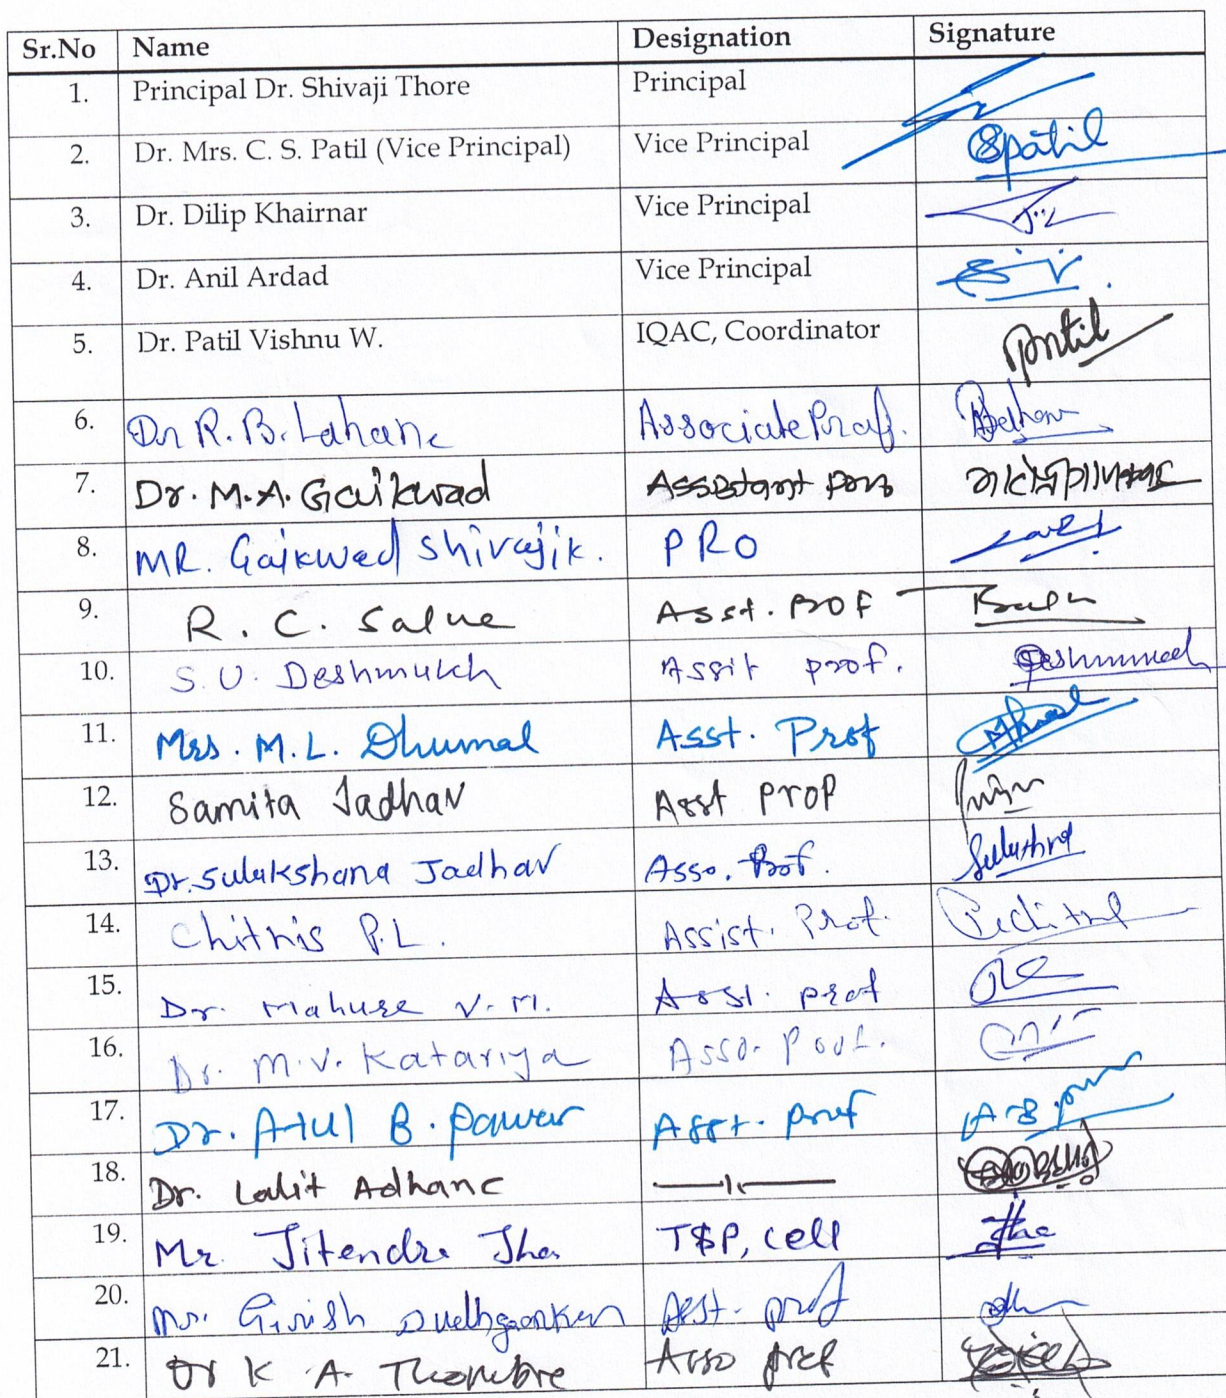 Sr.No Name Designation Signature
1. Principal Dr. Shivaji Thore Principal
2. Dr. Mrs. C. S. Patil (Vice Principal) Vice Principal Spatil
3. Dr. Dilip Khairnar Vice Principal
4. Dr. Anil Ardad Vice Principal
5. Dr. Patil Vishnu W. IQAC, Coordinator Patil
6. Dr R. B. Lahane Associate Prof.
7. Dr. M.A. Gaikwad Assistant
8. MR. Gaikwad Shivaji K. PRO
9. R. C. Salve Asst. Prof
10. S. U. Deshmukh Assit prof. Deshmukh
11. Mrs. M. L. Dhumal Asst. Prof
12. Samita Jadhav Asst Prof
13. Dr. Sulakshana Jadhav Asso. Prof.
14. Chitnis P.L. Assist. Prof.
15. Dr. Mahure V. M. Asst. prof
16. Dr. M. V. Katariya Asso. Prof.
17. Dr. Atul B. Pawar Asst. prof
18. Dr. Lalit Adhane —〃—
19. Mr. Jitendra Jha T&P, Cell Jha
20. Mr. Girish Asst. prof
21. Dr K. A. Thombre Asso prof